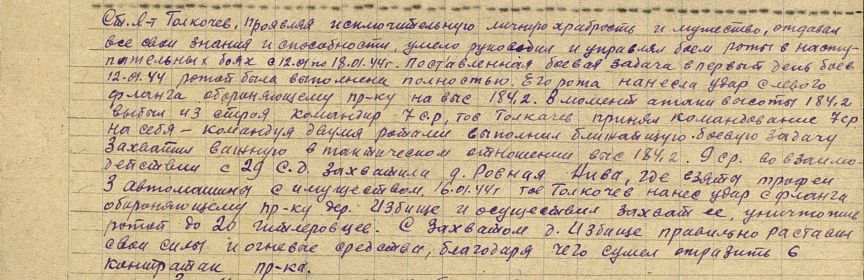 Ст. л-т Толкачев, проявляя исключительную личную храбрость и мужество, отдавал
все свои знания и способности, умело руководил и управлял боем роты в насту-
пательных боях с 12.01 по 18.01.44г. Поставленная боевая задача в первый день боев
12.01.44 ротой была выполнена полностью. Его рота нанесла удар с левого
фланга обороняющему пр-ку на выс 184,2. В момент атаки высоты 184,2
выбыл из строя командир 7 ср, тов Толкачев принял командование 7 ср
на себя - командуя двумя ротами выполнил ближайшую боевую задачу
Захватил важную в тактическом отношении выс 184,2. 9 ср. во взаимо-
действии с 29 С.Д. захватила д. Ровная Нива, где взяты трофеи
3 автомашины с имуществом. 16.01.44г тов Толкачев нанес удар с фланга
обороняющему пр-ку дер. Избище и осуществил захват ее, уничтожив
ротой до 20 гитлеровцев. С захватом д. Избище правильно расставил
свои силы и огневые средства, благодаря чего сумел отразить 6
контратак пр-ка.